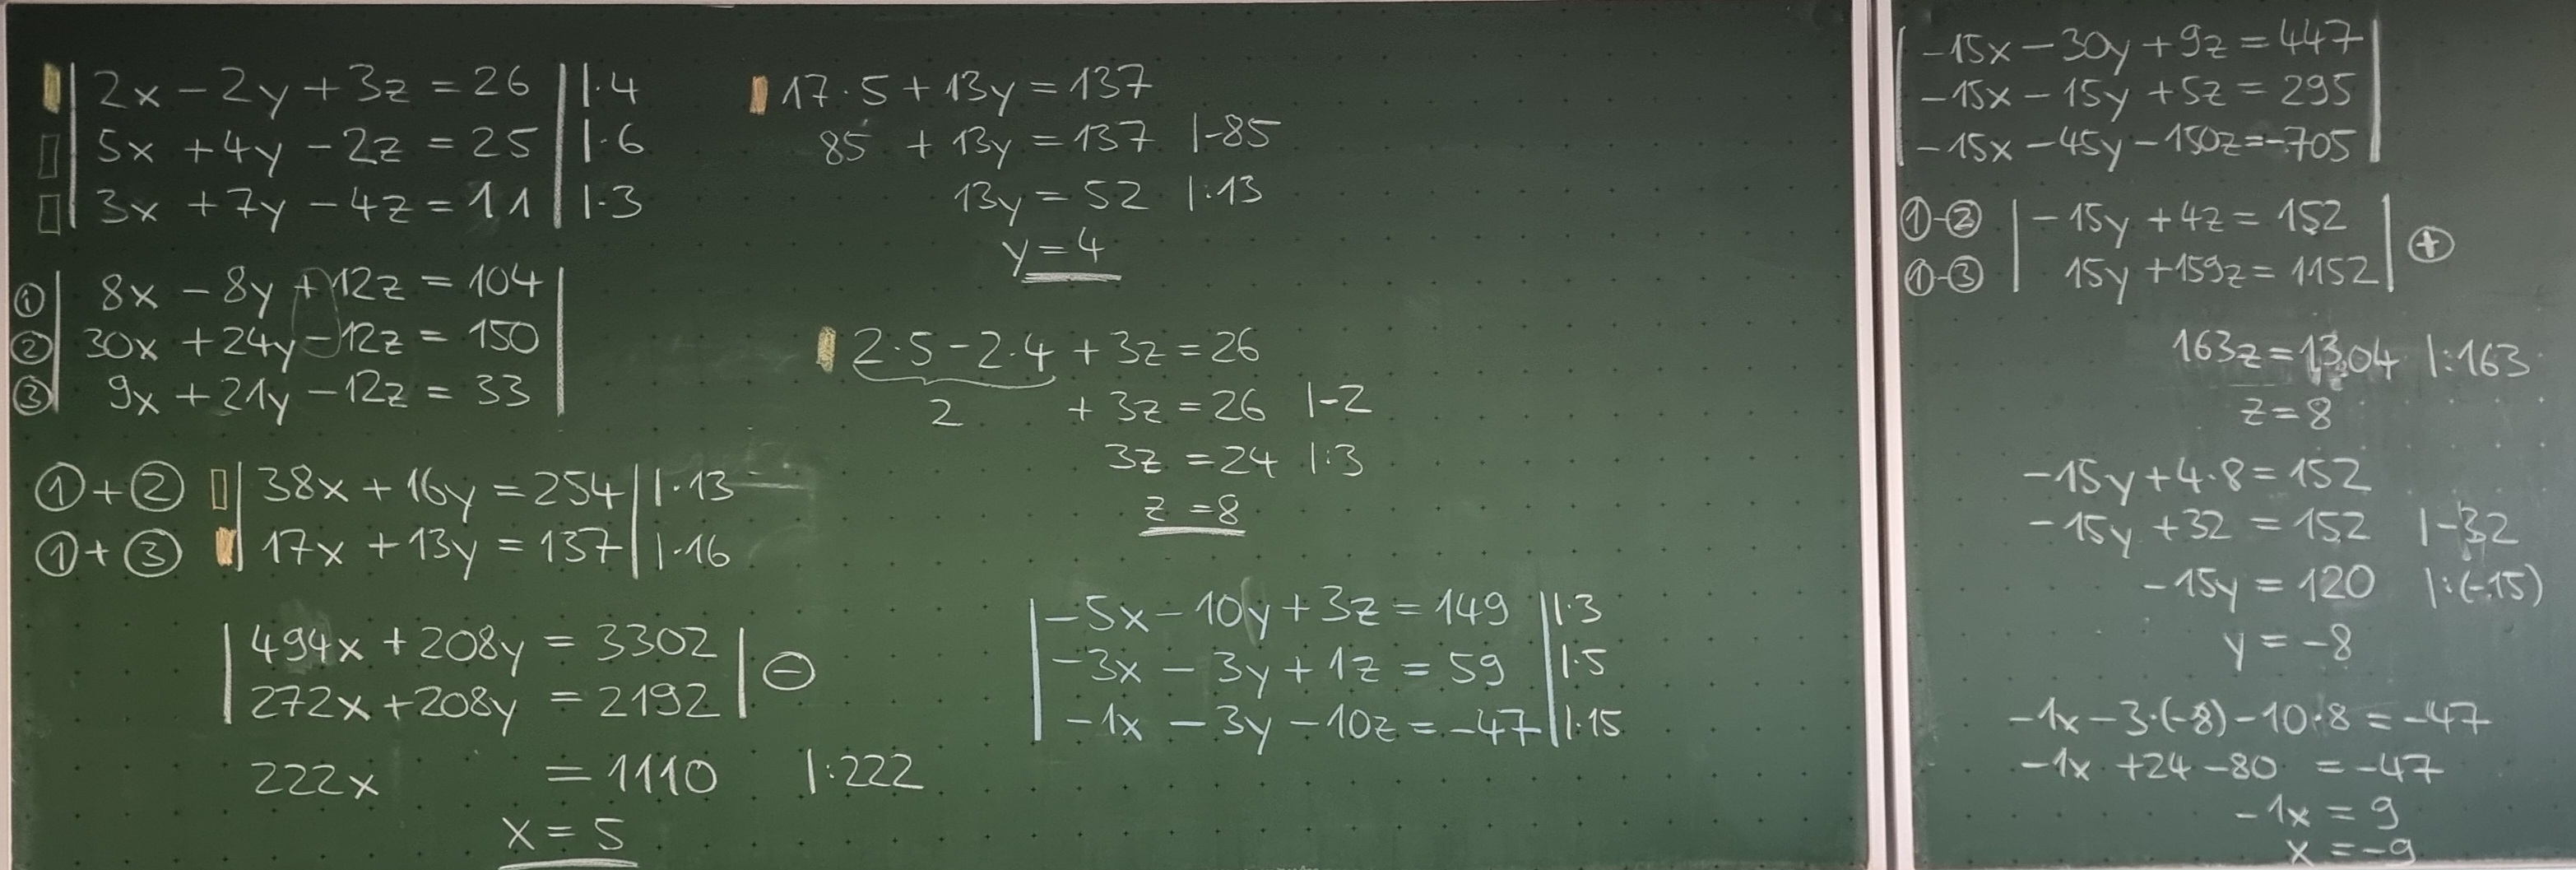 2x - 2y + 3z = 26 | |·4
5x + 4y - 2z = 25 | |·6
3x + 7y - 4z = 11 | |·3
① 8x - 8y + 12z = 104
② 30x + 24y - 12z = 150
③ 9x + 21y - 12z = 33
①+② | 38x + 16y = 254 | |·13
①+③ | 17x + 13y = 137 | |·16
| 494x + 208y = 3302 | ⊖
| 272x + 208y = 2192 |
222x = 1110 |:222
x = 5
17·5 + 13y = 137
85 + 13y = 137 |-85
13y = 52 |:13
y = 4
2·5 - 2·4 + 3z = 26
2 + 3z = 26 |-2
3z = 24 |:3
z = 8
| -5x - 10y + 3z = 149 | |·3
| -3x - 3y + 1z = 59 | |·5
| -1x - 3y - 10z = -47 | |·15
| -15x - 30y + 9z = 447 |
| -15x - 15y + 5z = 295 |
| -15x - 45y - 150z = -705 |
①-② | -15y + 4z = 152 | ⊕
①-③ | 15y + 159z = 1152 |
163z = 1304 |:163
z = 8
-15y + 4·8 = 152
-15y + 32 = 152 |-32
-15y = 120 |:(-15)
y = -8
-1x - 3·(-8) - 10·8 = -47
-1x + 24 - 80 = -47
-1x = 9
x = -9